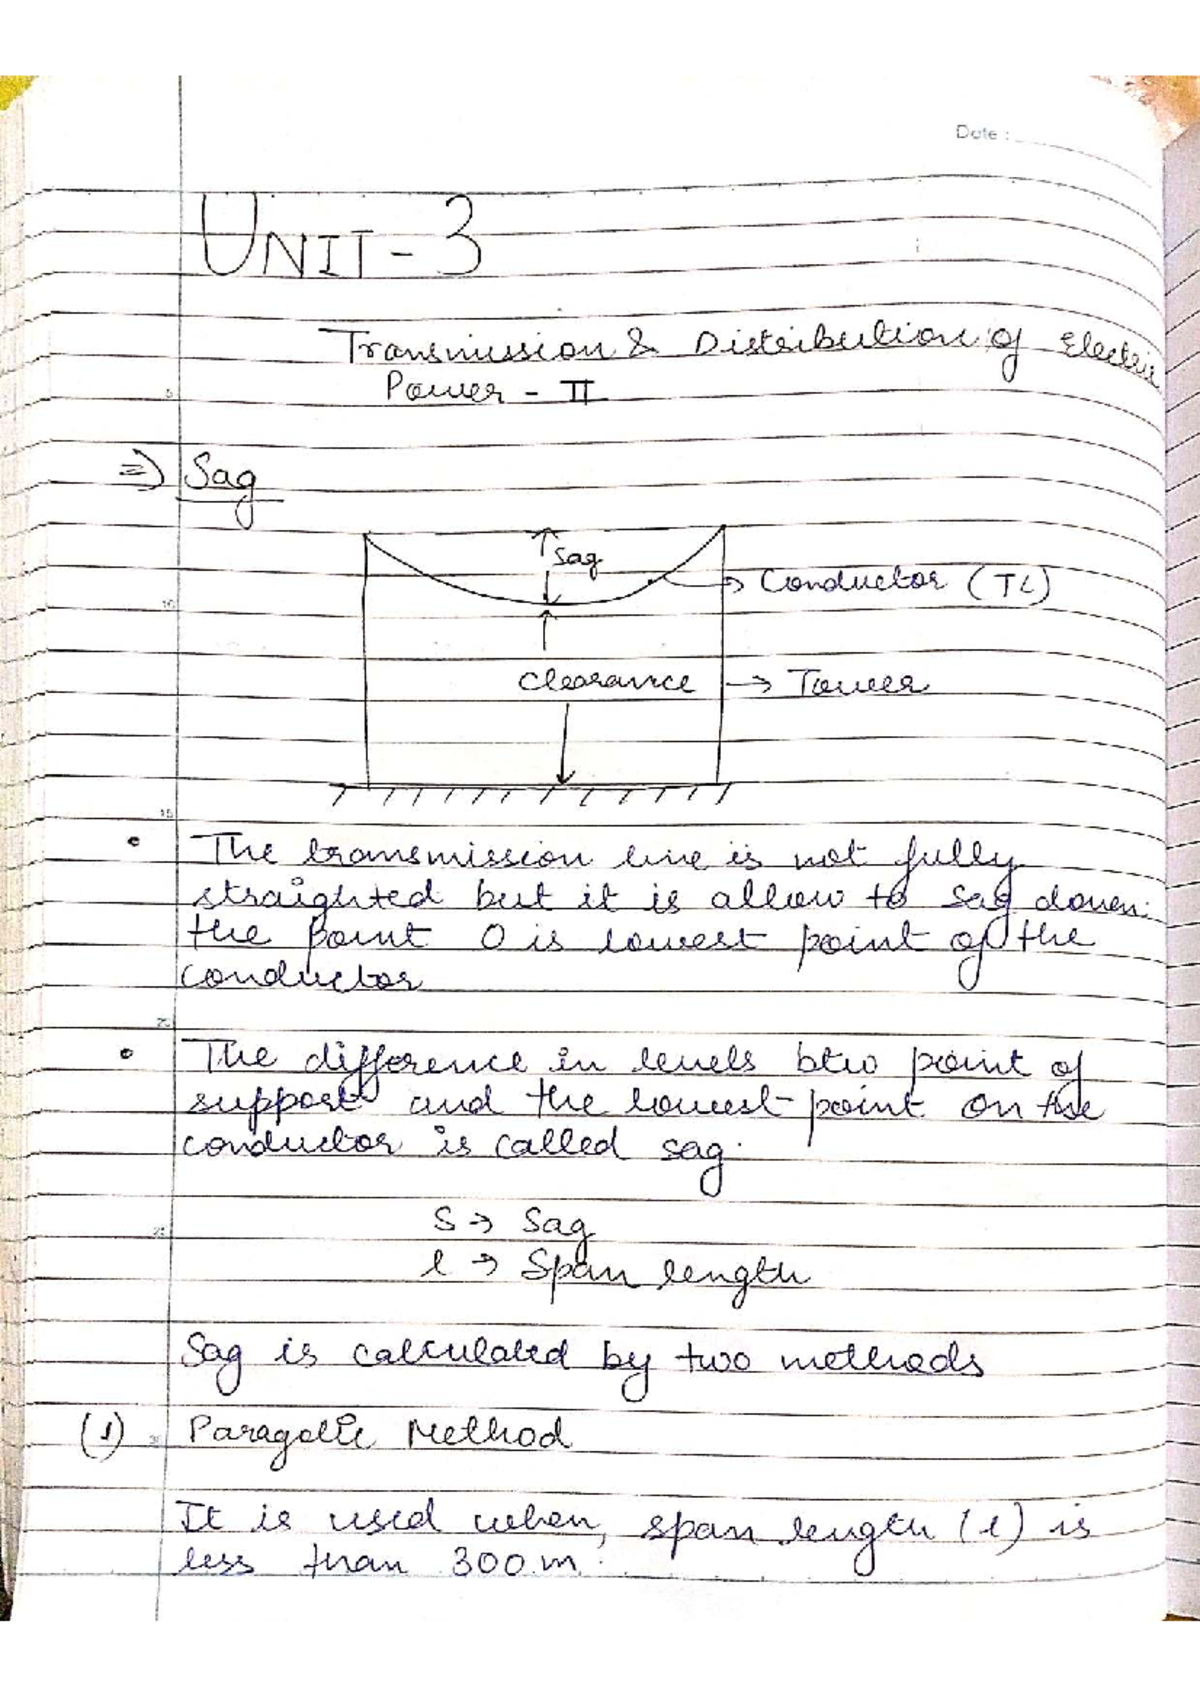 Date :
UNIT - 3
Transmission & Distribution of Electric
Power - II
⇒) Sag
Sag
→ Conductor (TL)
Clearance → Tower
• The transmission line is not fully
straighted but it is allow to sag down.
the point O is lowest point of the
conductor
• The difference in levels btw point of
support and the lowest point on the
conductor is called sag.
S → Sag
l → Span length
Sag is calculated by two methods
(1) Paragolic Method
It is used when, span length (l) is
less than 300.m.